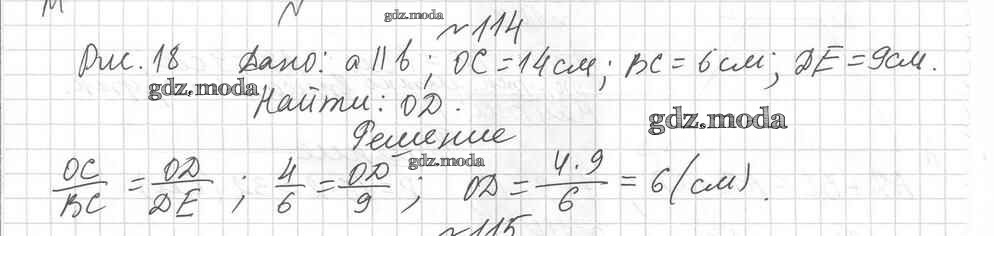 gdz.moda
№114
Рис. 18 Дано: a || b; OC = 14 см; BC = 6 см; DE = 9 см.
gdz.moda
Найти: OD.
gdz.moda
Решение
gdz.moda
OC/BC = OD/DE; 4/6 = OD/9; OD = 4·9/6 = 6 (см).
№115